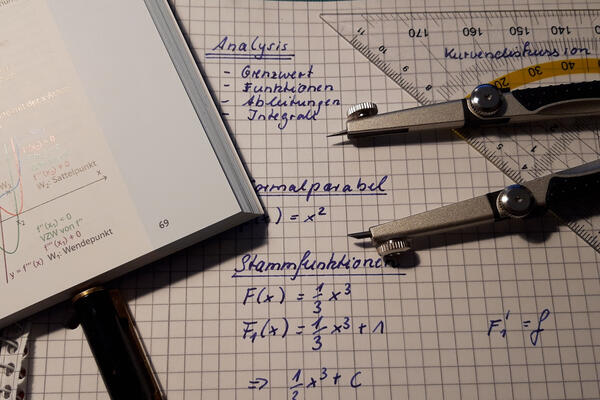 Analysis
- Grenzwert
- Funktionen
- Ableitungen
- Integrale
Kurvendiskussion
170 160 150 140
20 30 40
11
10
9
8
W₂-Sattelpunkt
x₂
x
f''(x₁) = 0
VZW von f''
f'''(x₁) ≠ 0
W₁-Wendepunkt
y = f'''(x)
69
ormalparabel
) = x²
Stammfunktionen
F(x) = 1/3 x³
F₁(x) = 1/3 x³ + 1
F₁' = f
=> 1/3 x³ + C